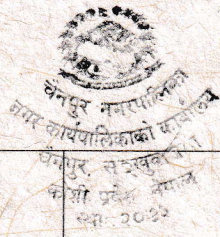 चैनपुर नगरपालिका
नगर कार्यपालिकाको कार्यालय
चैनपुर, सङ्खुवासभा
कोशी प्रदेश नेपाल